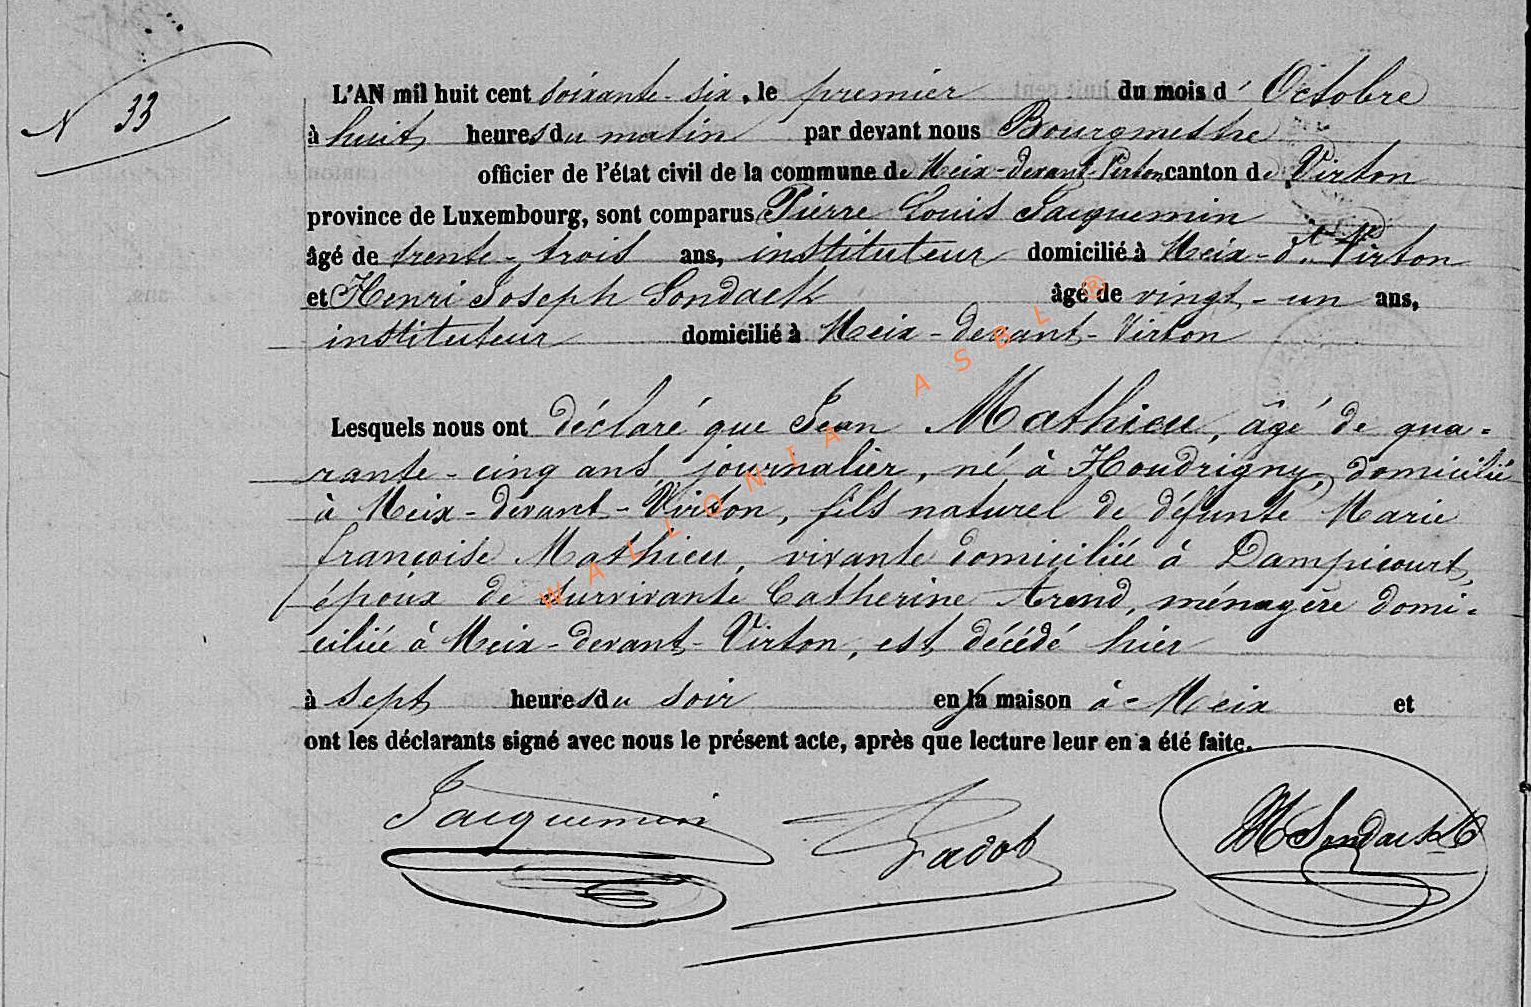 N 33
L'AN mil huit cent soixante-six, le premier du mois d'Octobre
à huit heures du matin par devant nous Bourgmestre
officier de l'état civil de la commune de Meix-devant-Virton canton de Virton
province de Luxembourg, sont comparus Pierre Louis Jacquemin
âgé de trente-trois ans, instituteur domicilié à Meix-dt Virton
et Henri Joseph Gondack âgé de vingt-un ans,
instituteur domicilié à Meix-devant-Virton
Lesquels nous ont déclaré que Jean Mathieu, âgé de qua-
rante-cinq ans, journalier, né à Houdrigny, domicilié
à Meix-devant-Virton, fils naturel de défunte Marie
françoise Mathieu, vivante domiciliée à Dampicourt,
époux de survivante Catherine Arend, ménagère domi-
ciliée à Meix-devant-Virton, est décédé hier
à sept heures du soir en la maison à Meix et
ont les déclarants signé avec nous le présent acte, après que lecture leur en a été faite.
Jacquemin
WALLONIA ASBL ®